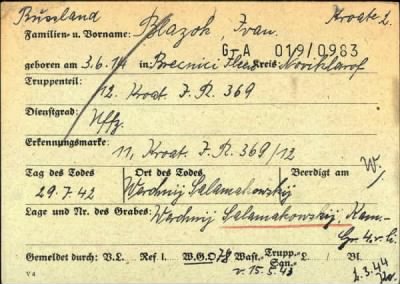 Russland
Kroate 2.
Familien- u. Vorname: Blazok, Ivan.
G-A 019/0983
geboren am 3.6.14 in: Brecnici Kreis: Novi
Truppenteil:
12. Kroat. J. R. 369
Dienstgrad: Uffz.
Erkennungsmarke: 11, Kroat. J. R. 369/12
Tag des Todes Ort des Todes Beerdigt am
29.7.42 Werchnij Salamakowskij W,
Lage und Nr. des Grabes: Werchnij Salamakowskij,
Gr. 4. v. li.
Gemeldet durch: V.L. Ref I. W.G.O 78 Wast. Trupp. L / Bl.
v. 15.5.43 2.3.44
V 4